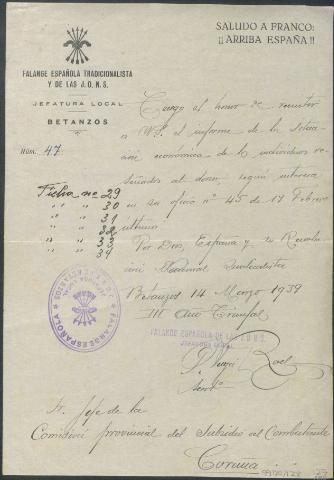 SALUDO A FRANCO:
¡¡ARRIBA ESPAÑA!!
FALANGE ESPAÑOLA TRADICIONALISTA
Y DE LAS J.O.N.S.
JEFATURA LOCAL
BETANZOS
Núm. 47
Tengo el honor de remitir
a V.S. el informe de la situa
ción económica de los individuos re
señados al dorso, según interesa
en su oficio nº 45 de 17 Febrero
último
Ficha nº 29
" " " 30
" " " 31
" " " 32
" " " 33
" " " 34
Por Dios, España y su Revolu
ción Nacional Sindicalista
Betanzos 14 Marzo 1939
III Año Triunfal
FALANGE ESPAÑOLA DE LAS J.O.N.S.
JEFATURA LOCAL
FALANGE ESPAÑOLA
BETANZOS
Sr. Jefe de la
Comisión provincial del Subsidio al Combatiente
Coruña